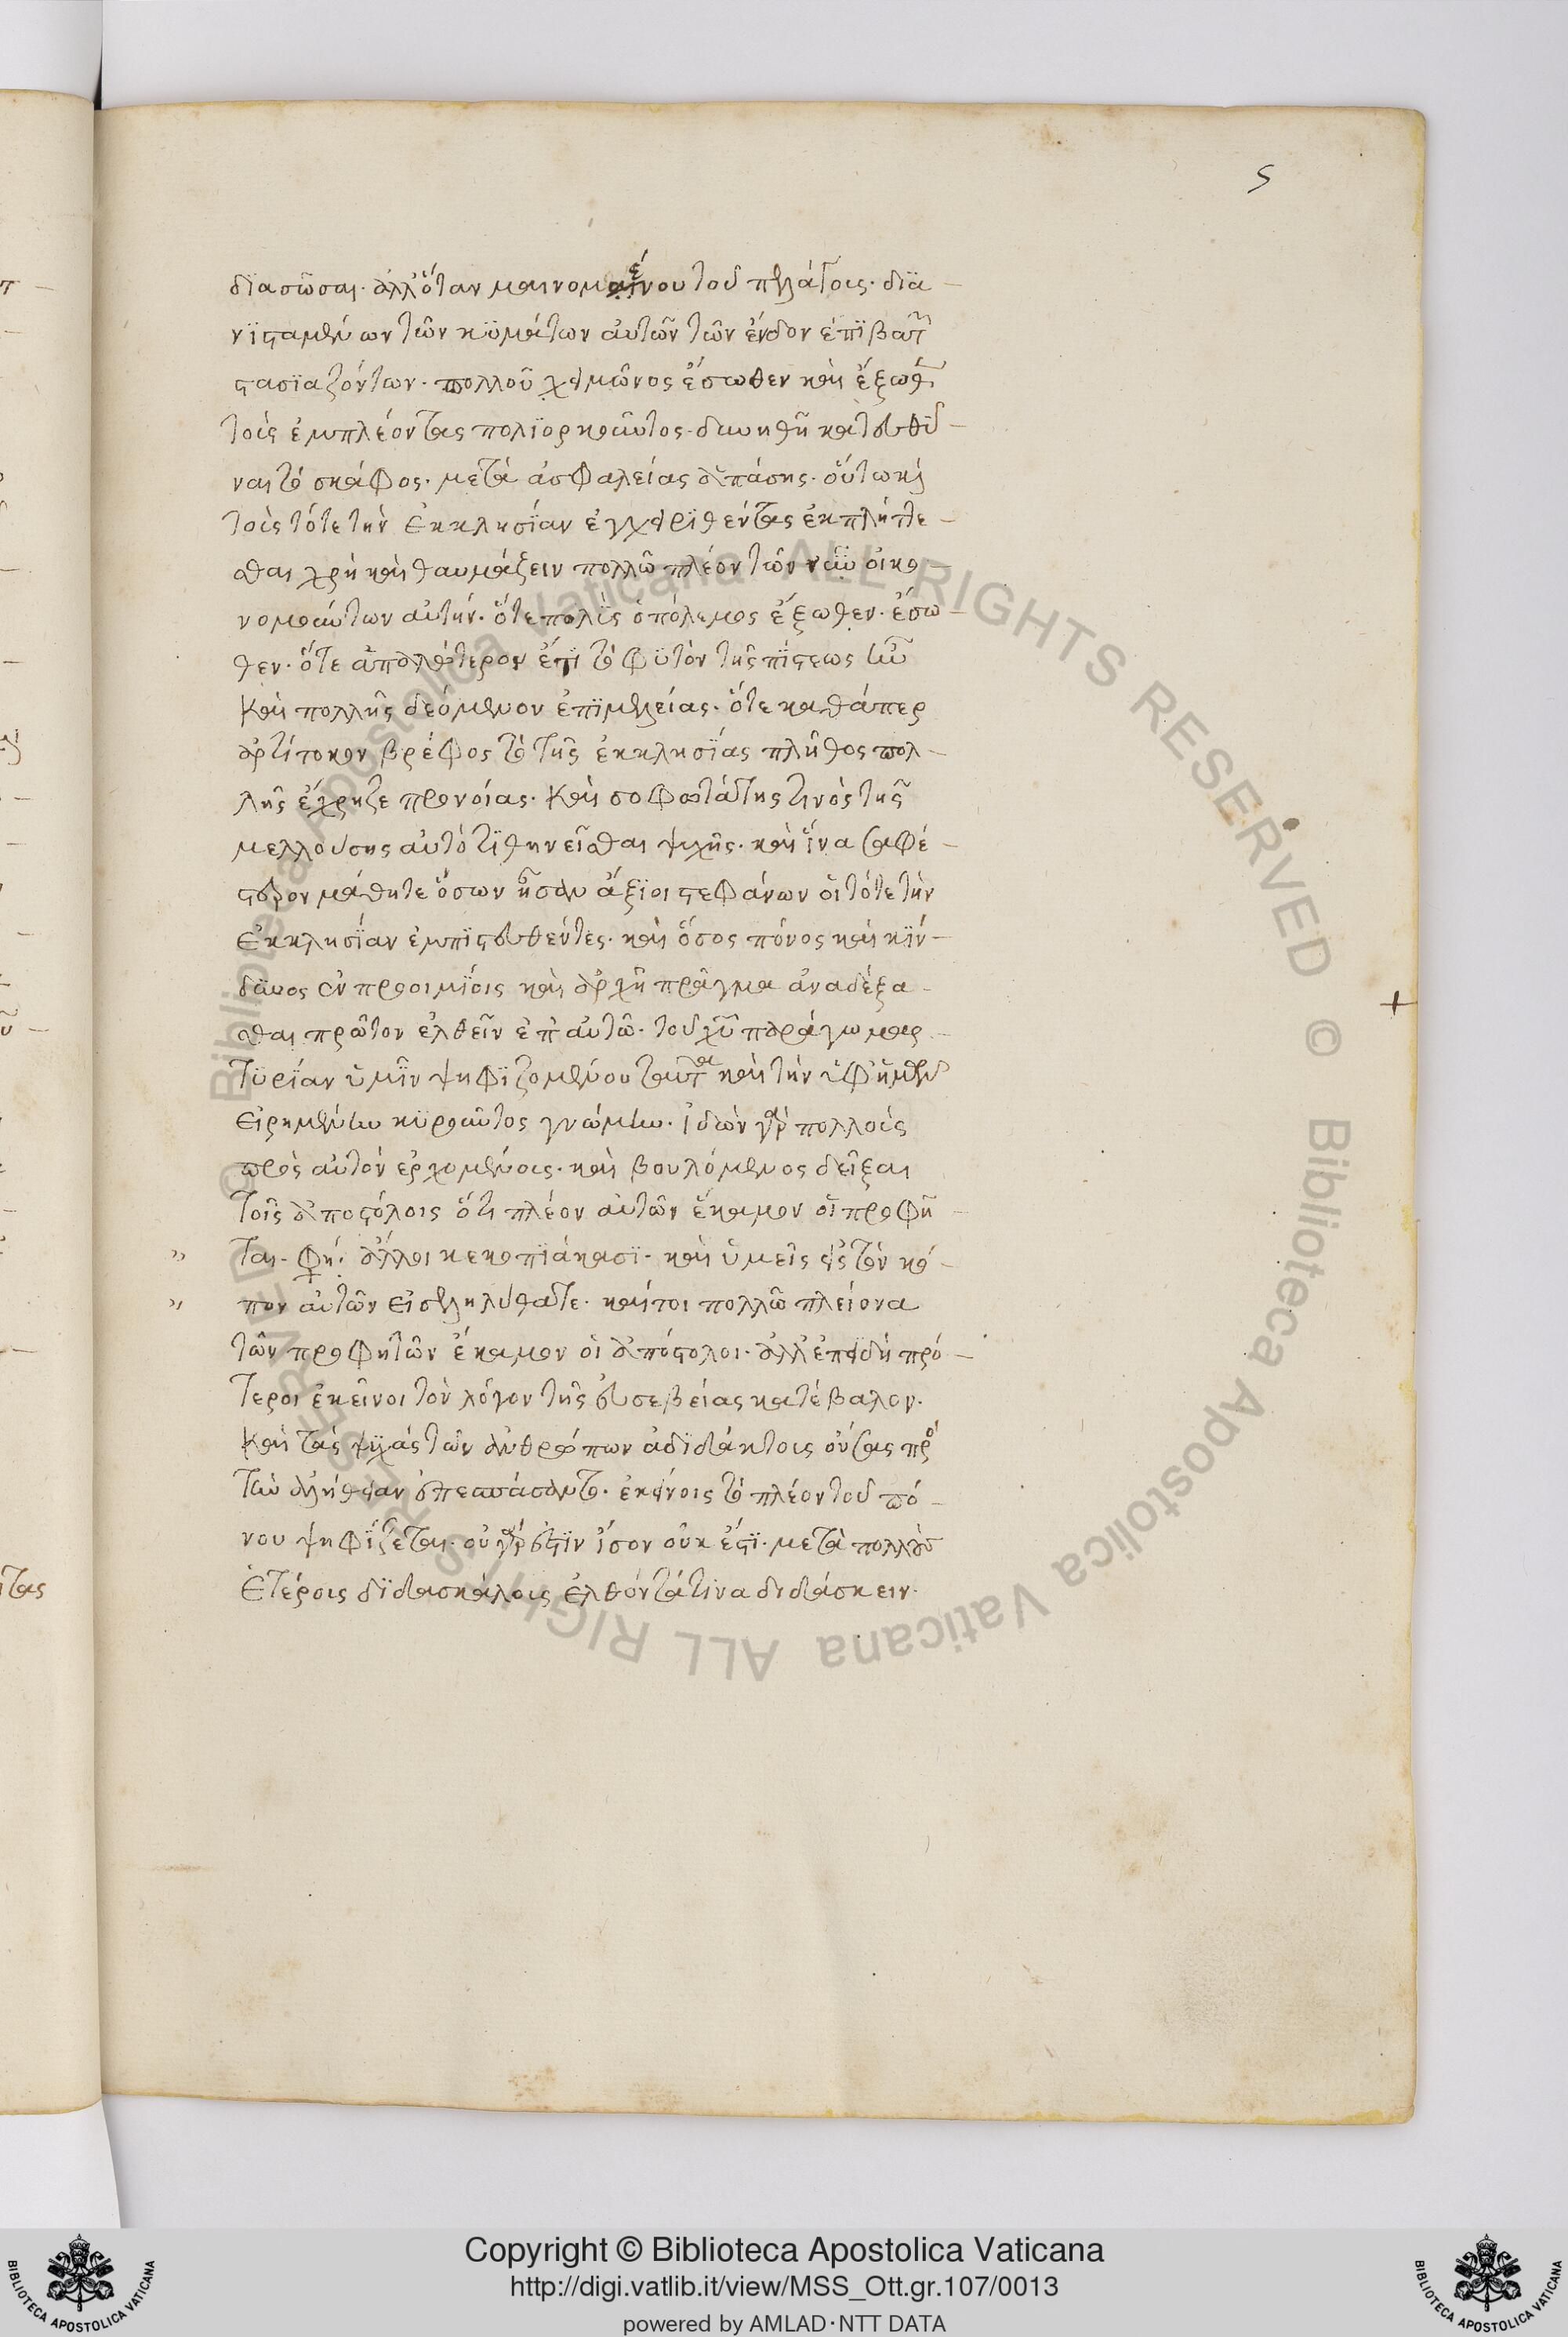 5
διασῶσαι· ἀλλ' ὅταν μαινομένου τοῦ πελάγους· δια
νισταμένων τῶν κυμάτων αὐτῶν τῶν ἔνδον ἐπιβατ
στασιαζόντων· πολλοῦ χειμῶνος ἔσωθεν καὶ ἔξωθ
τοὺς ἐμπλέοντας πολιορκοῦντος· δυνηθῆ κατευθῦ
ναι τὸ σκάφος· μετὰ ἀσφαλείας ἁπάσης· οὕτω καὶ
τοὺς τότε τὴν ἐκκλησίαν ἐγχειρισθέντας ἐκπλήττε
σθαι χρὴ καὶ θαυμάζειν πολλῶ πλέον τῶν νῦν οἰκο
νομούντων αὐτήν· ὅτε πολὺς ὁ πόλεμος ἔξωθεν· ἔσω
θεν· ὅτε ἁπαλώτερον ἔτι τὸ φυτὸν τῆς πίστεως ἦν
καὶ πολλῆς δεόμενον ἐπιμελείας· ὅτε καθάπερ
ἀρτίτοκον βρέφος τὸ τῆς ἐκκλησίας πλῆθος πολ
λῆς ἔχρηζε προνοίας· καὶ σοφωτάτης τινὸς τῆς
μελλούσης αὐτὸ τιθηνεῖσθαι ψυχῆς· καὶ ἵνα σαφέ
στερον μάθητε ὅσων ἦσαν ἄξιοι στεφάνων οἱ τότε τὴν
ἐκκλησίαν ἐμπιστευθέντες· καὶ ὅσος πόνος καὶ κίν
δυνος ἐν προοιμίοις καὶ ἀρχῆ πρᾶγμα ἀναδέξα
σθαι πρῶτον ἐλθεῖν ἐπ' αὐτῶ· τοῦ χῦ παράγω μαρ
τυρίαν ὑμῖν ψηφιζομένου ταῦτα καὶ τὴν ὑφ' ἡμῶν
εἰρημένην κυροῦντος γνώμην· ἰδὼν γὰρ πολλοὺς
πρὸς αὐτὸν ἐρχομένους· καὶ βουλόμενος δεῖξαι
τοῖς ἀποστόλοις ὅτι πλέον αὐτῶν ἔκαμον οἱ προφῆ
ται· φη· ἄλλοι κεκοπιάκασι· καὶ ὑμεῖς εἰς τὸν κό
πον αὐτῶν εἰσεληλύθατε· καίτοι πολλῶ πλείονα
τῶν προφητῶν ἔκαμον οἱ ἀπόστολοι· ἀλλ' ἐπειδὴ πρό
τεροι ἐκεῖνοι τὸν λόγον τῆς εὐσεβείας κατέβαλον·
καὶ τὰς ψυχὰς τῶν ἀνθρώπων ἀδιδάκτους οὔσας πρὸ
τὴν ἀλήθειαν ἐπεσπάσαντο· ἐκείνοις τὸ πλέον τοῦ πό
νου ψηφίζεται· οὐ γάρ ἐστιν ἴσον οὐκ ἔστι· μετὰ πολλοὺς
ἑτέρους διδασκάλους ἐλθόντά τινα διδάσκειν·
Copyright © Biblioteca Apostolica Vaticana
http://digi.vatlib.it/view/MSS_Ott.gr.107/0013
powered by AMLAD·NTT DATA